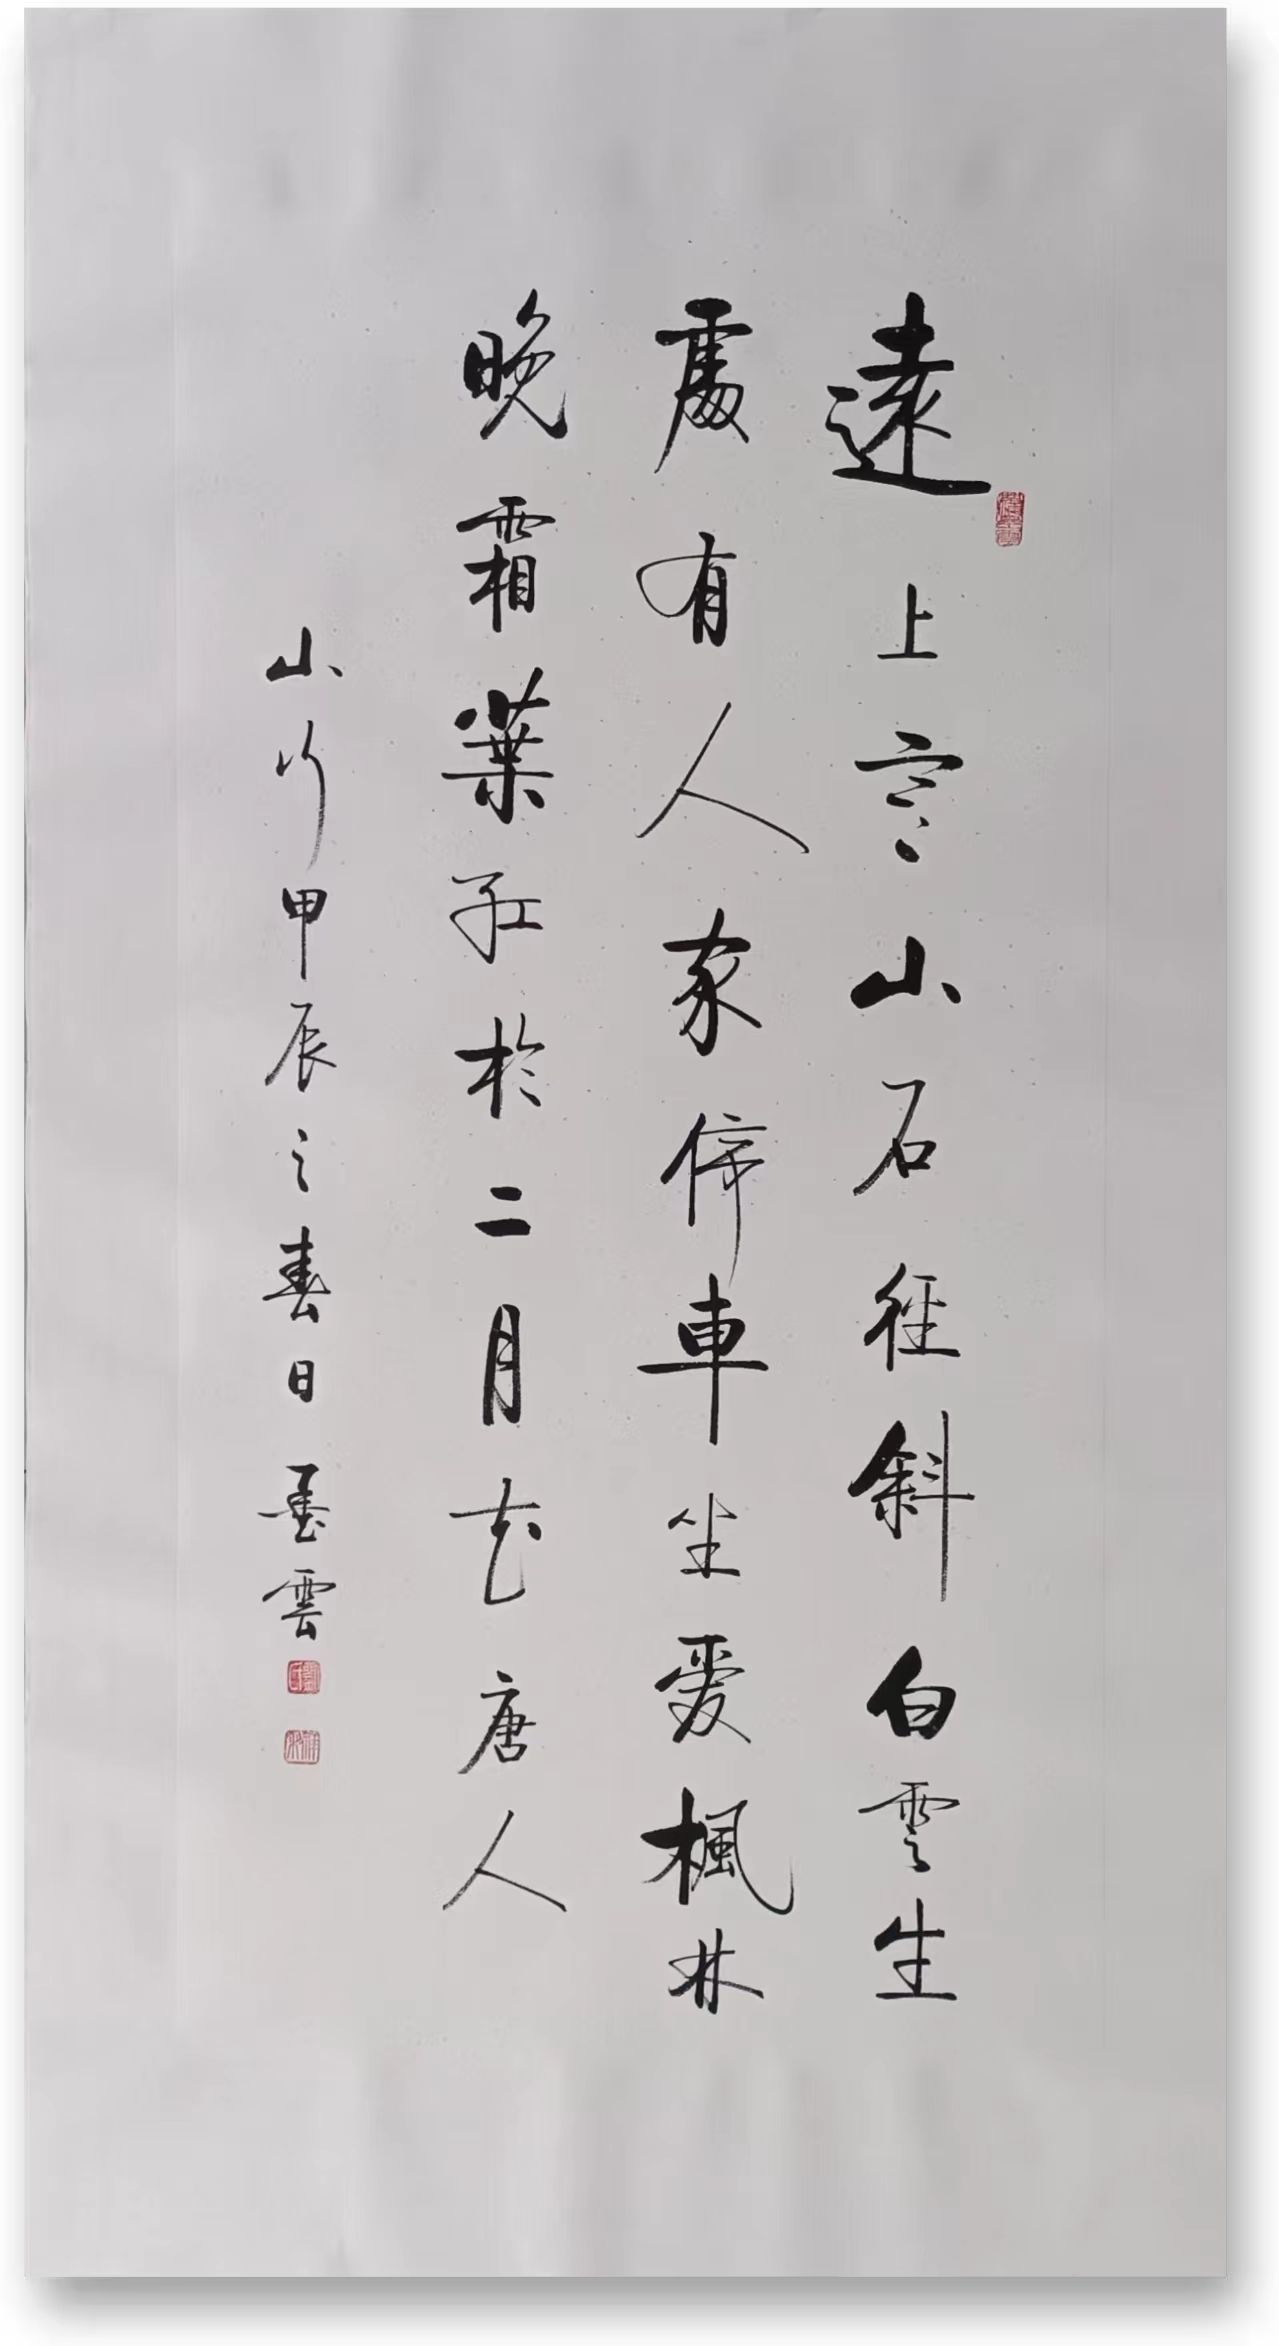 遠上寒山石徑斜白雲生
處有人家停車坐愛楓林
晚霜葉紅於二月花唐人
山行甲辰之春日墨雲